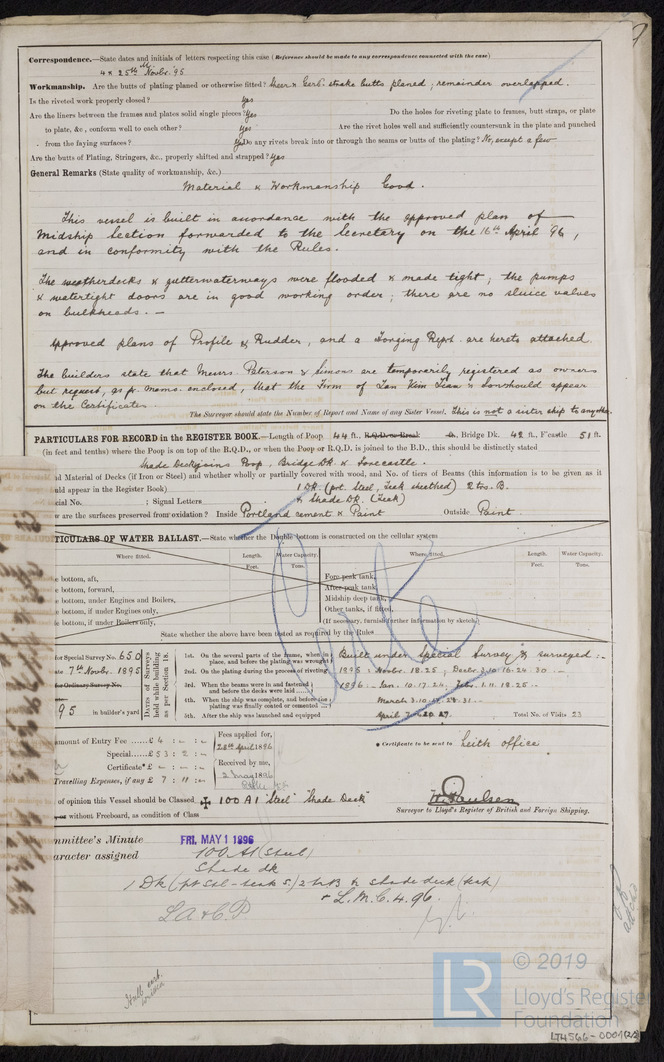 Correspondence.—State dates and initials of letters respecting this case (Reference should be made to any correspondence connected with the case)
4 & 25th Novbr. '95
Workmanship. Are the butts of plating planed or otherwise fitted? Sheer & Gerb. strake butts planed; remainder overlapped.
Is the riveted work properly closed? Yes
Are the liners between the frames and plates solid single pieces? Yes Do the holes for riveting plate to frames, butt straps, or plate
to plate, &c., conform well to each other? Yes Are the rivet holes well and sufficiently countersunk in the plate and punched
from the faying surfaces? Yes Do any rivets break into or through the seams or butts of the plating? No, except a few
Are the butts of Plating, Stringers, &c., properly shifted and strapped? Yes
General Remarks (State quality of workmanship, &c.)
Material & Workmanship Good.
This vessel is built in accordance with the approved plan of
Midship Section forwarded to the Secretary on the 16th April 96,
and in conformity with the Rules.
The weatherdecks & gutterwaterways were flooded & made tight; the pumps
& watertight doors are in good working order; there are no sluice valves
on bulkheads. —
Approved plans of Profile & Rudder, and a Forging Rept. are hereto attached.
The builders state that Messrs. Paterson & Simons are temporarily registered as owners
but request, as pr. memo. enclosed, that the Firm of Tan Kim Tian & Son should appear
on the Certificates.
The Surveyor should state the Number of Report and Name of any Sister Vessel. This is not a sister ship to any other.
PARTICULARS FOR RECORD in the REGISTER BOOK.—Length of Poop 44 ft. R.Q.D. or Break ft., Bridge Dk. 42 ft., F'castle 51 ft.
(in feet and tenths) where the Poop is on top of the R.Q.D., or when the Poop or R.Q.D. is joined to the B.D., this should be distinctly stated
Shade Deck joins Poop, Bridge Dk. & Forecastle.
d Material of Decks (if Iron or Steel) and whether wholly or partially covered with wood, and No. of tiers of Beams (this information is to be given as it
uld appear in the Register Book) 1 Dk. (prt. Steel, Teak sheathed) 2 trs. B.
ial No. ; Signal Letters & Shade Dk. (Teak)
w are the surfaces preserved from oxidation? Inside Portland cement & Paint Outside Paint.
TICULARS OF WATER BALLAST.—State whether the Double bottom is constructed on the cellular system
Where fitted. Length. Water Capacity. Where fitted. Length. Water Capacity.
Feet. Tons. Feet. Tons.
e bottom, aft, Fore peak tank,
e bottom, forward, After peak tank,
e bottom, under Engines and Boilers, Midship deep tank,
e bottom, if under Engines only, Other tanks, if fitted,
e bottom, if under Boilers only, (If necessary, furnish further information by sketch.)
State whether the above have been tested as required by the Rules
for Special Survey No. 650
7th Novbr. 1895
for Ordinary Survey No.
95 in builder's yard
DATES of Surveys held while building as per Section 18.
1st. On the several parts of the frame, when in place, and before the plating was wrought
2nd. On the plating during the process of riveting
3rd. When the beams were in and fastened, and before the decks were laid
4th. When the ship was complete, and before the plating was finally coated or cemented
5th. After the ship was launched and equipped
Built under special Survey & surveyed:-
1895: Novbr. 18. 25; Decbr. 3. 10. 16. 24. 30 —
1896 – Jan. 10. 17. 24; Febr. 1. 11. 18. 25 –
March 3. 10. 17. 24. 31 —
April 7. 10. 20. 29. Total No. of Visits 23
amount of Entry Fee £ 4 : – : –
Special £ 53 : 2 : –
Certificate £ – : – : –
Travelling Expenses, if any £ 7 : 11 : –
Fees applied for,
28th April 1896
Received by me,
2 May 1896
Certificate to be sent to Leith office
of opinion this Vessel should be Classed ✠ 100 A1 "Steel" "Shade Deck"
or without Freeboard, as condition of Class
W. Paulsen
Surveyor to Lloyd's Register of British and Foreign Shipping.
mmittee's Minute FRI. MAY 1 1896
aracter assigned 100 A1 (Steel)
Shade dk
1 Dk (pt Stl – teak s.) 2 trs B & shade deck (teak)
+ L.M.C. 4. 96.
L A & C P
Hull cert. written
© 2019
LR
Lloyd's Register
Foundation
LT4566-0001(2/2)